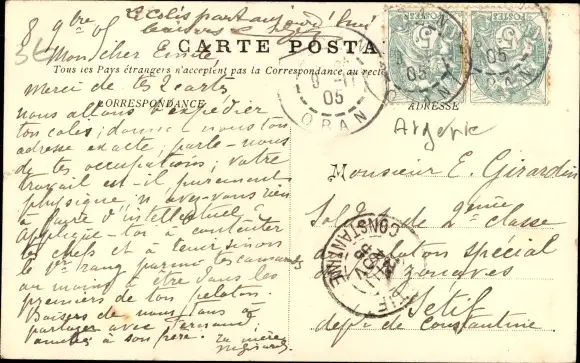 8 9bre 05
Le colis part aujourd'hui
Mon cher Emile
CARTE POSTA
Tous les Pays étrangers n'acceptent pas la Correspondance au recto
CORRESPONDANCE
ADRESSE
Merci de tes 2 cartes
nous allons t'expédier
ton colis; donne nous ton
adresse exacte, parle-nous
de tes occupations; votre
travail est-il purement
physique, n'avez-vous rien
à faire d'intellectuel?
Applique-toi à contenter
tes chefs et à tenir sinon
le 1er rang parmi tes camarades
au moins à être dans les
premiers de ton peloton.
Baisers de nous tous à
partager avec Fernand;
amitiés à son frère. Ta mère
Algérie
Monsieur E. Girardin
Soldat de 2ème classe
peloton spécial
de zouaves
Sétif
dépt de Constantine
05
ORAN
POSTES
5
05
POSTES
5
05
CONSTANTINE